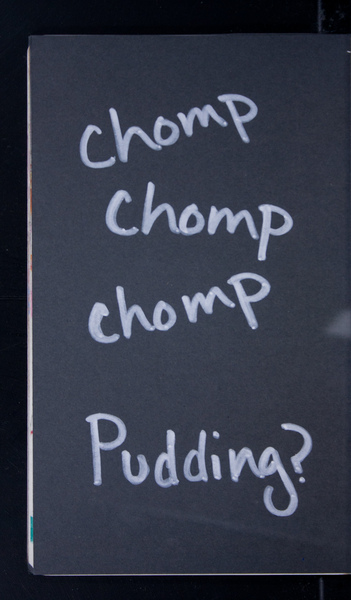 chomp
chomp
chomp
Pudding?